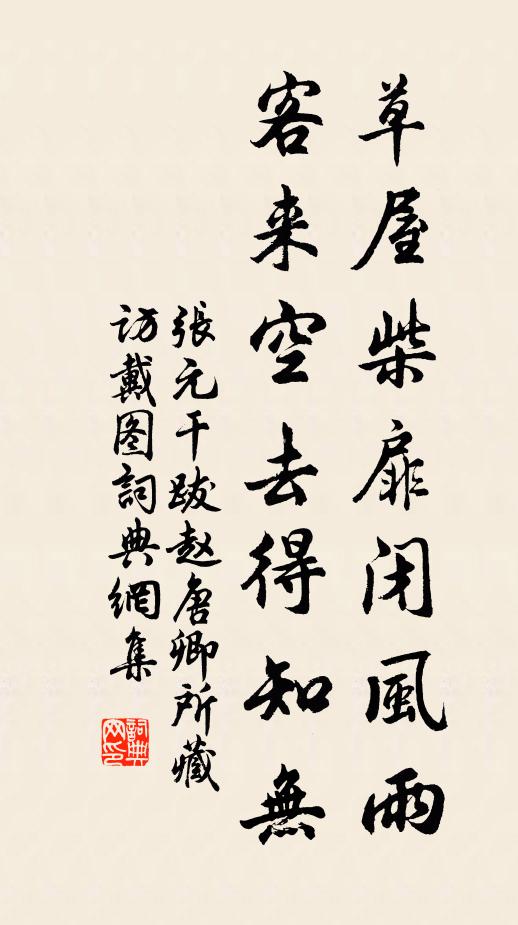 草屋柴扉闭風雨
客来空去得知無
張元干跋赵唐卿所藏
访戴图詞典網集
詞典
网印